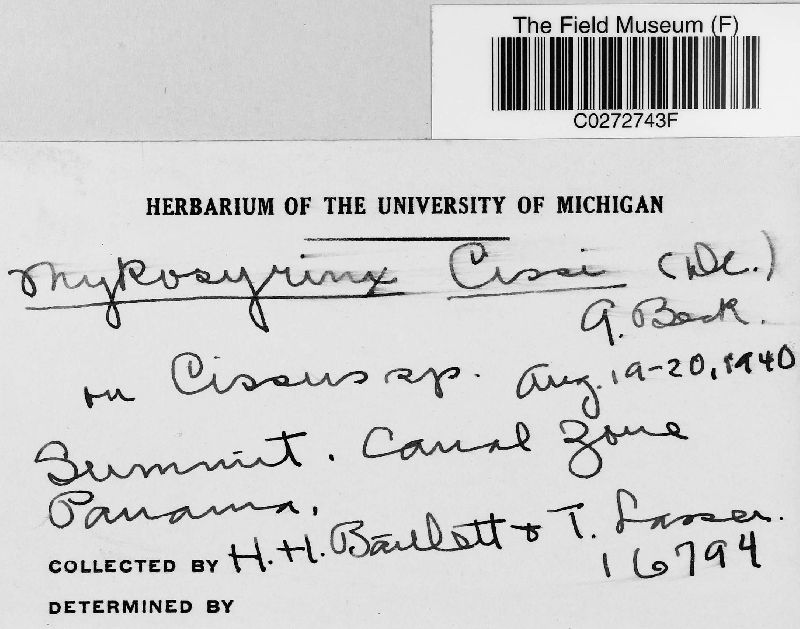 The Field Museum (F)
C0272743F
HERBARIUM OF THE UNIVERSITY OF MICHIGAN
Mykosyrinx Cissi (DC.)
G. Beck.
on Cissus sp. Aug. 19-20, 1940
Summit. Canal Zone
Panama.
COLLECTED BY H. H. Bartlett + T. Lasser.
16794
DETERMINED BY